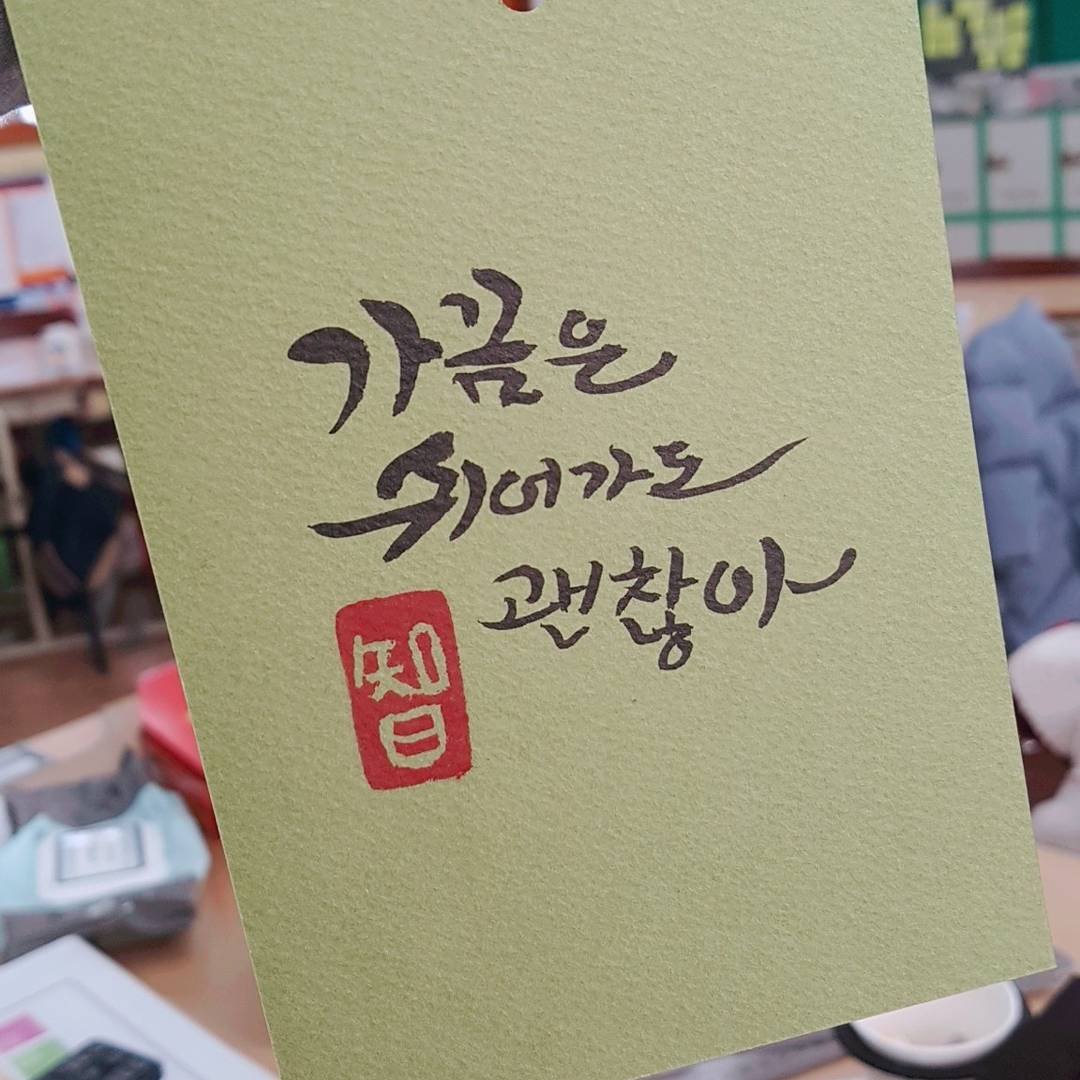 가끔은
쉬어가도
괜찮아
智